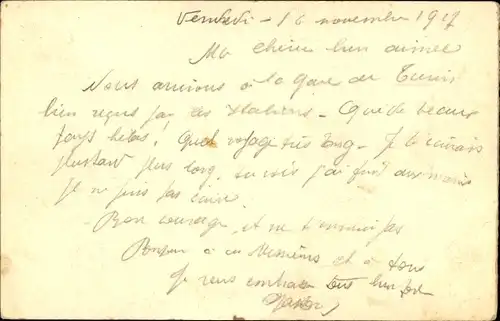 Vendredi - 16 novembre 1917
Ma chérie bien aimée
Nous arrivons à la gare de Turin
bien reçus par les Italiens - Que de beaux
pays hélas! Quel voyage très long - Je t'écrirais
plus tard plus long, tu vois j'ai froid aux mains
Je ne puis pas écrire
Bon courage, et ne t'ennuie pas
Bonjour à ces Messieurs et à tous
Je vous embrasse tous bien fort